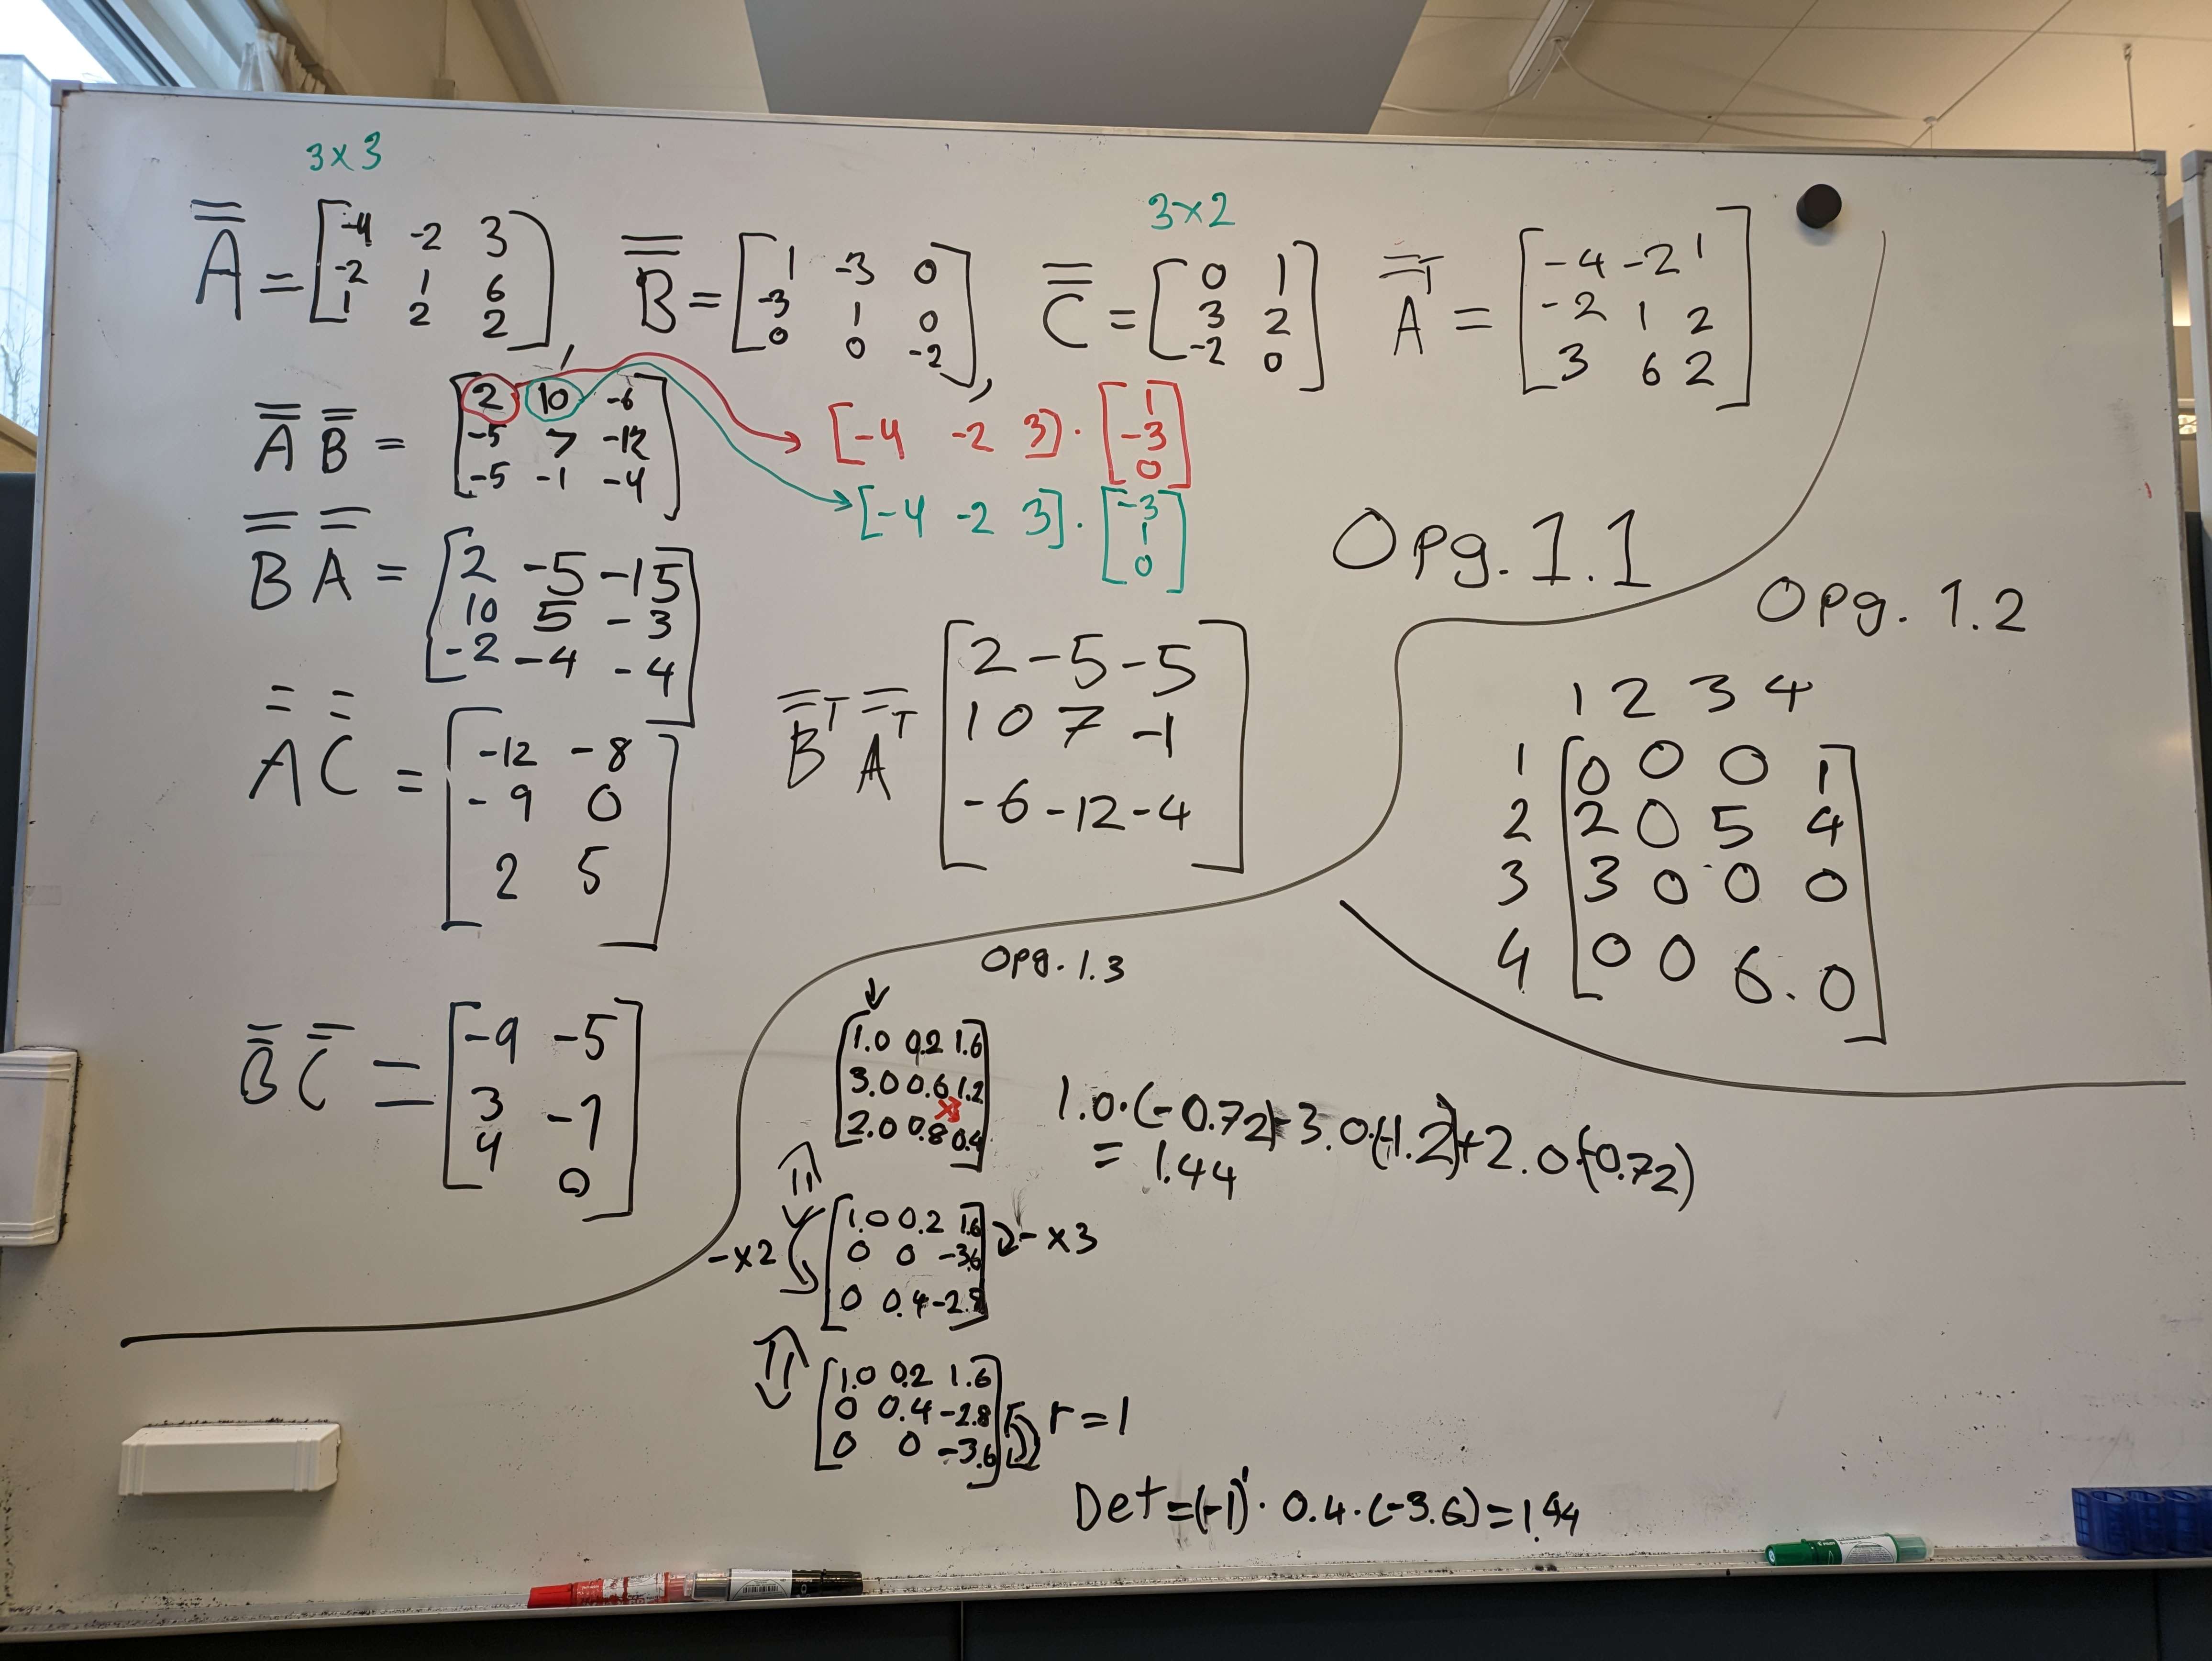 3x3
3x2
A = [-4 -2 3
-2 1 6
1 2 2],
B = [1 -3 0
-3 1 0
0 0 -2],
C = [0 1
3 2
-2 0]
A^T = [-4 -2 1
-2 1 2
3 6 2]
A B = [2 10 -6
-5 7 -12
-5 -1 -4]
[-4 -2 3] · [1
-3
0]
[-4 -2 3] · [-3
1
0]
B A = [2 -5 -15
10 5 -3
-2 -4 -4]
A C = [-12 -8
-9 0
2 5]
B C = [-9 -5
3 -1
4 0]
B^T A^T [2 -5 -5
10 7 -1
-6 -12 -4]
Opg. 1.1
Opg. 1.2
1 2 3 4
1 [0 0 0 1
2 2 0 5 4
3 3 0 0 0
4 0 0 6. 0]
Opg. 1.3
[1.0 0.2 1.6
3.0 0.6 1.2
2.0 0.8 0.4]
1.0·(-0.72)-3.0·(-1.2)+2.0·(-0.72)
= 1.44
-x2 [1.0 0.2 1.6
0 0 -3.6
0 0.4 -2.8] - x3
[1.0 0.2 1.6
0 0.4 -2.8
0 0 -3.6] r=1
Det = (-1)^1 · 0.4 · (-3.6) = 1.44